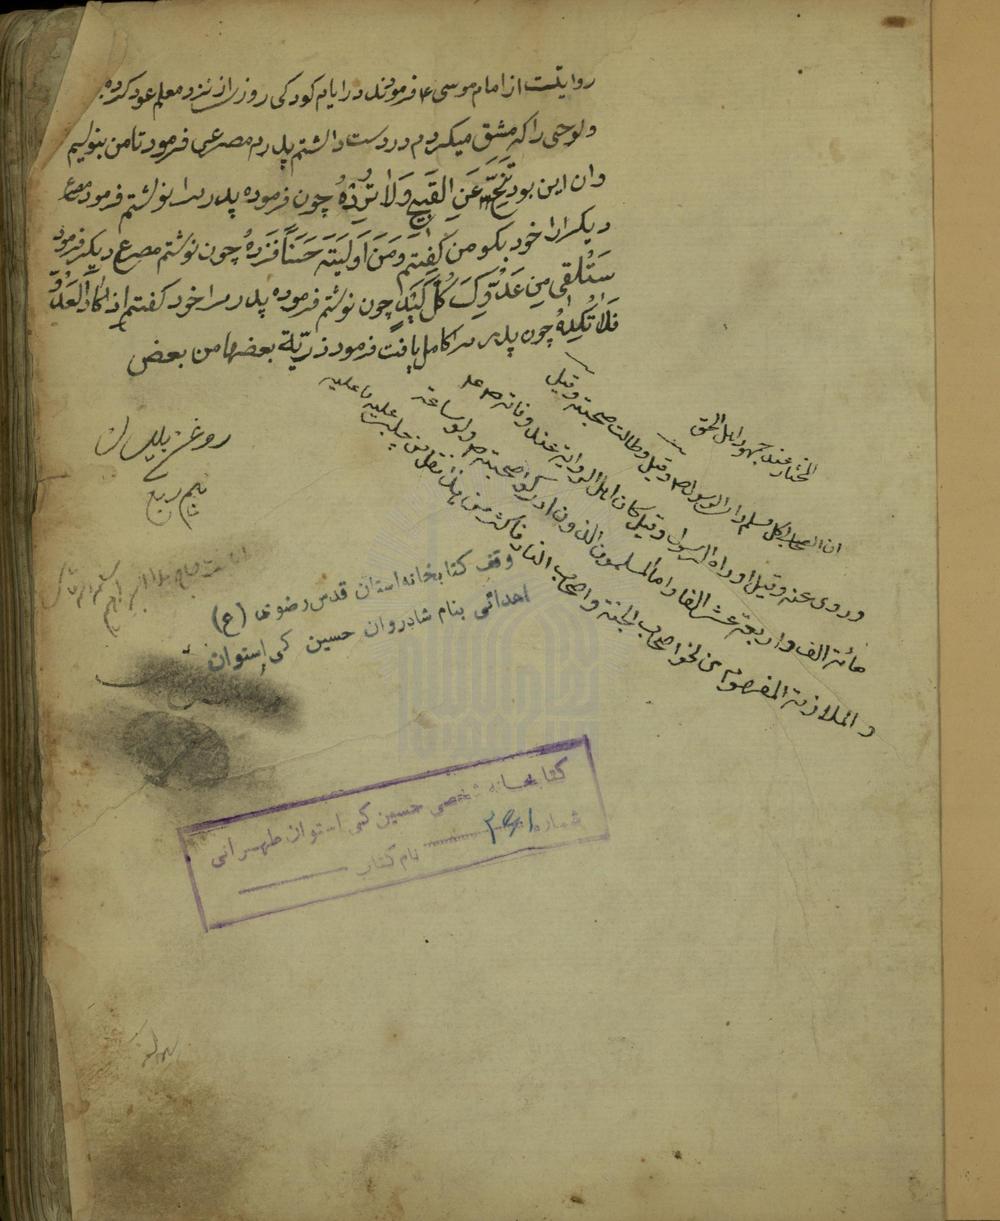 روایتست از امام موسی ع فرمودند در ایام کودکی روزی از نزد معلم عود کرده
و لوحی را که مشق میکردم در دست داشتم پدرم مصرعی فرمود تا من بنویسم
و ان این بود تَنَحَّ عَنِ القَبِیحِ وَلَا تُرِدْهُ چون فرموده پدر را نوشتم فرمود مصرع
دیکر از خود بکو من کفتم وَمَنْ اَولَیتَهُ حَسَناً فَزِدْهُ چون نوشتم مصرع دیکر فرمود
سَتُلْقی مِن عَدُوِّكَ كُلَّ كَیْدٍ چون نوشتم فرموده پدر را خود کفتم اِذا كادَ العَدُوُّ
فَلَا تَكِدْهُ چون پدر مرا کامل یافت فرمود ذریّة بعضها من بعض
المختار عند جمهور اهل الحق
ان الصحابی کل مسلم رای الرسول ص وقیل وطالت صحبته وقیل
وروی عنه وقیل او راه الرسول وقیل کان اهل الروایة عند وفاته ص
مائة الف واربعة عشر الفا واما المسلمون الذین ادرکوا صحبته ص ولو ساعة
و الملازمة المفهوم من نحو اصحاب الجنة واصحاب النار فاکثر من
روغن بلسان
پنجم ربیع
وقف کتابخانه استان قدس رضوی (ع)
اهدائی بنام شادروان حسین کی استوان
کتابخانه شخصی حسین کی استوان طهرانی
شماره
نام کتاب